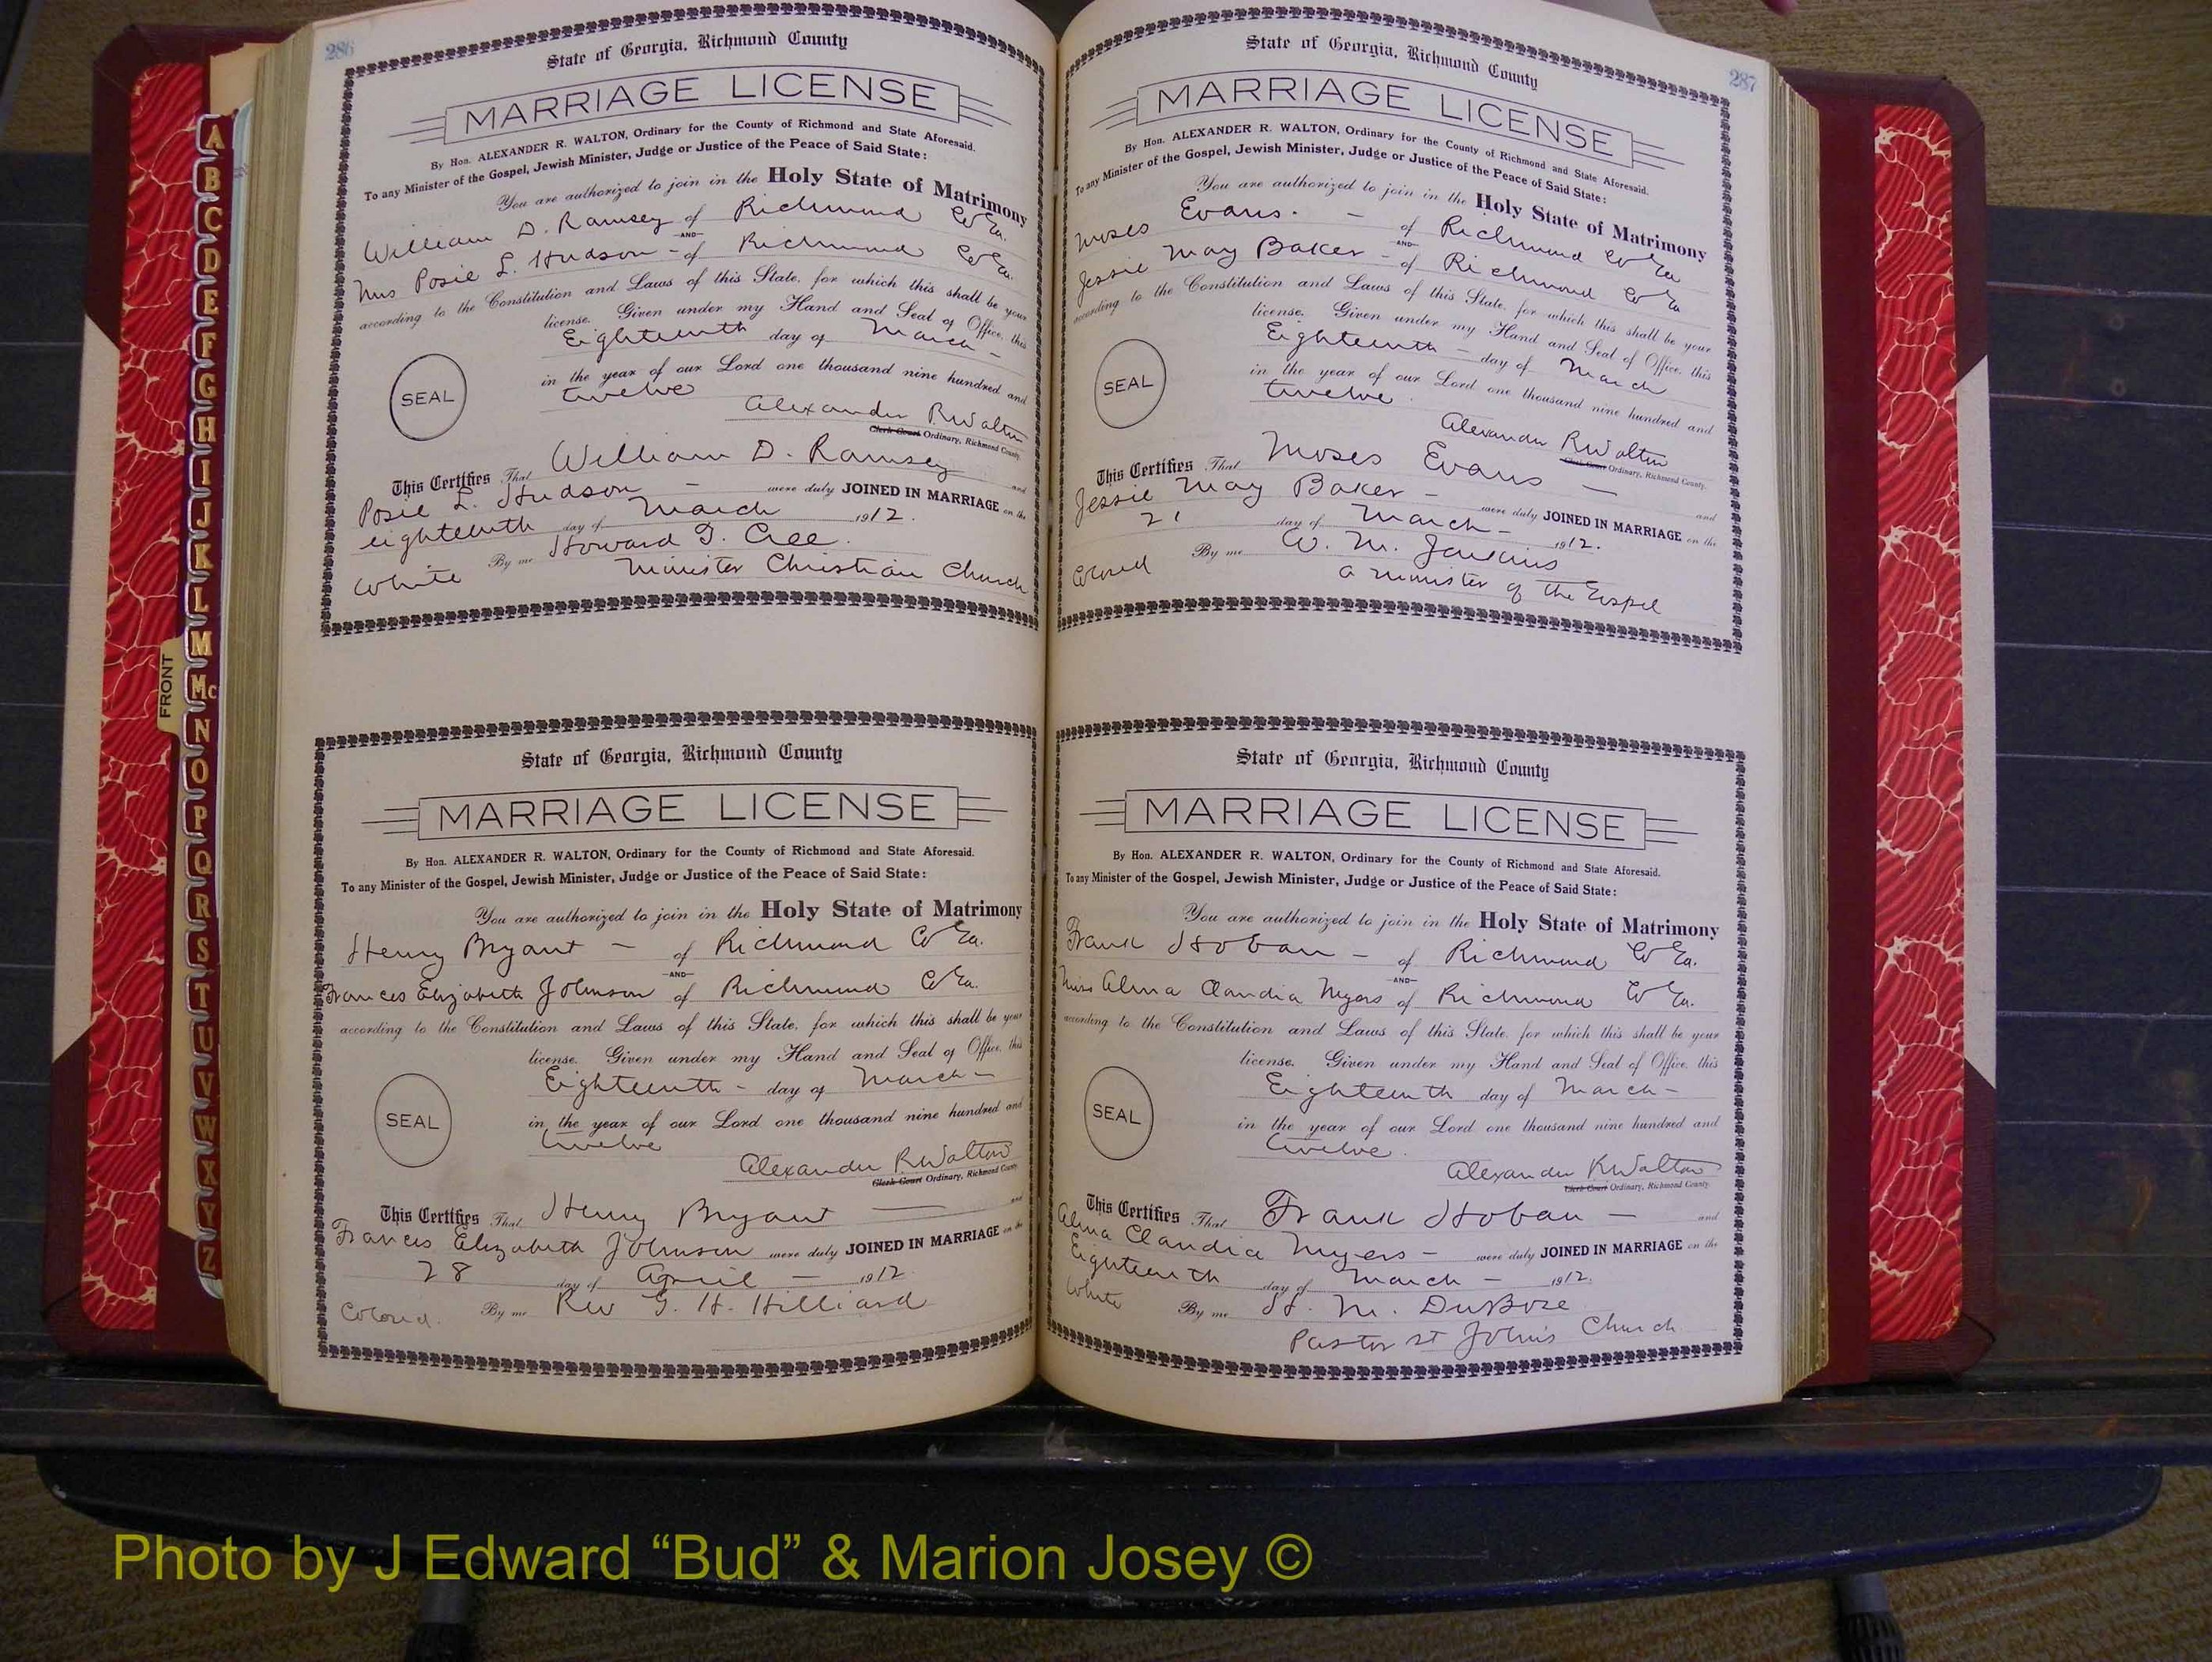 286
State of Georgia, Richmond County
MARRIAGE LICENSE
By Hon. ALEXANDER R. WALTON, Ordinary for the County of Richmond and State Aforesaid.
To any Minister of the Gospel, Jewish Minister, Judge or Justice of the Peace of Said State:
You are authorized to join in the Holy State of Matrimony
William D. Ramsey of Richmond Co Ga.
AND
Mrs Posie L. Hudson - of Richmond Co Ga.
according to the Constitution and Laws of this State, for which this shall be your
license. Given under my Hand and Seal of Office, this
Eighteenth day of March -
in the year of our Lord one thousand nine hundred and
twelve
SEAL
Alexander R Walton
Clerk Court Ordinary, Richmond County.
This Certifies That William D. Ramsey and
Posie L. Hudson - were duly JOINED IN MARRIAGE on the
eighteenth day of March 1912.
By me Howard T. Cree.
White Minister Christian Church
State of Georgia, Richmond County
MARRIAGE LICENSE
By Hon. ALEXANDER R. WALTON, Ordinary for the County of Richmond and State Aforesaid.
To any Minister of the Gospel, Jewish Minister, Judge or Justice of the Peace of Said State:
You are authorized to join in the Holy State of Matrimony
Henry Bryant - of Richmond Co Ga.
AND
Frances Elizabeth Johnson of Richmond Co Ga.
according to the Constitution and Laws of this State, for which this shall be your
license. Given under my Hand and Seal of Office, this
Eighteenth - day of March -
in the year of our Lord one thousand nine hundred and
twelve
SEAL
Alexander R Walton
Clerk Court Ordinary, Richmond County.
This Certifies That Henry Bryant — and
Frances Elizabeth Johnson were duly JOINED IN MARRIAGE on the
28 day of April - 1912
Colored. By me Rev G. H. Hilliard
287
State of Georgia, Richmond County
MARRIAGE LICENSE
By Hon. ALEXANDER R. WALTON, Ordinary for the County of Richmond and State Aforesaid.
To any Minister of the Gospel, Jewish Minister, Judge or Justice of the Peace of Said State:
You are authorized to join in the Holy State of Matrimony
Moses Evans. - of Richmond Co Ga
AND
Jessie May Baker - of Richmond Co Ga
according to the Constitution and Laws of this State, for which this shall be your
license. Given under my Hand and Seal of Office, this
Eighteenth - day of March
in the year of our Lord one thousand nine hundred and
twelve.
SEAL
Alexander R Walton
Clerk Court Ordinary, Richmond County.
This Certifies That Moses Evans — and
Jessie May Baker - were duly JOINED IN MARRIAGE on the
21 day of March - 1912.
Colored By me W. M. Jenkins
a minister of the Gospel
State of Georgia, Richmond County
MARRIAGE LICENSE
By Hon. ALEXANDER R. WALTON, Ordinary for the County of Richmond and State Aforesaid.
To any Minister of the Gospel, Jewish Minister, Judge or Justice of the Peace of Said State:
You are authorized to join in the Holy State of Matrimony
Frank Hoban - of Richmond Co Ga.
AND
Miss Alma Claudia Myers of Richmond Co Ga.
according to the Constitution and Laws of this State, for which this shall be your
license. Given under my Hand and Seal of Office, this
Eighteenth day of March -
in the year of our Lord one thousand nine hundred and
twelve.
SEAL
Alexander R Walton
Clerk Court Ordinary, Richmond County.
This Certifies That Frank Hoban - and
Alma Claudia Myers - were duly JOINED IN MARRIAGE on the
Eighteenth day of March - 1912.
White By me H. M. DuBose
Pastor St John's Church
A
B
C
D
E
F
G
H
I
J
K
L
M
Mc
N
O
P
Q
R
S
T
U
V
W
X
Y
Z
FRONT
Photo by J Edward “Bud” & Marion Josey ©